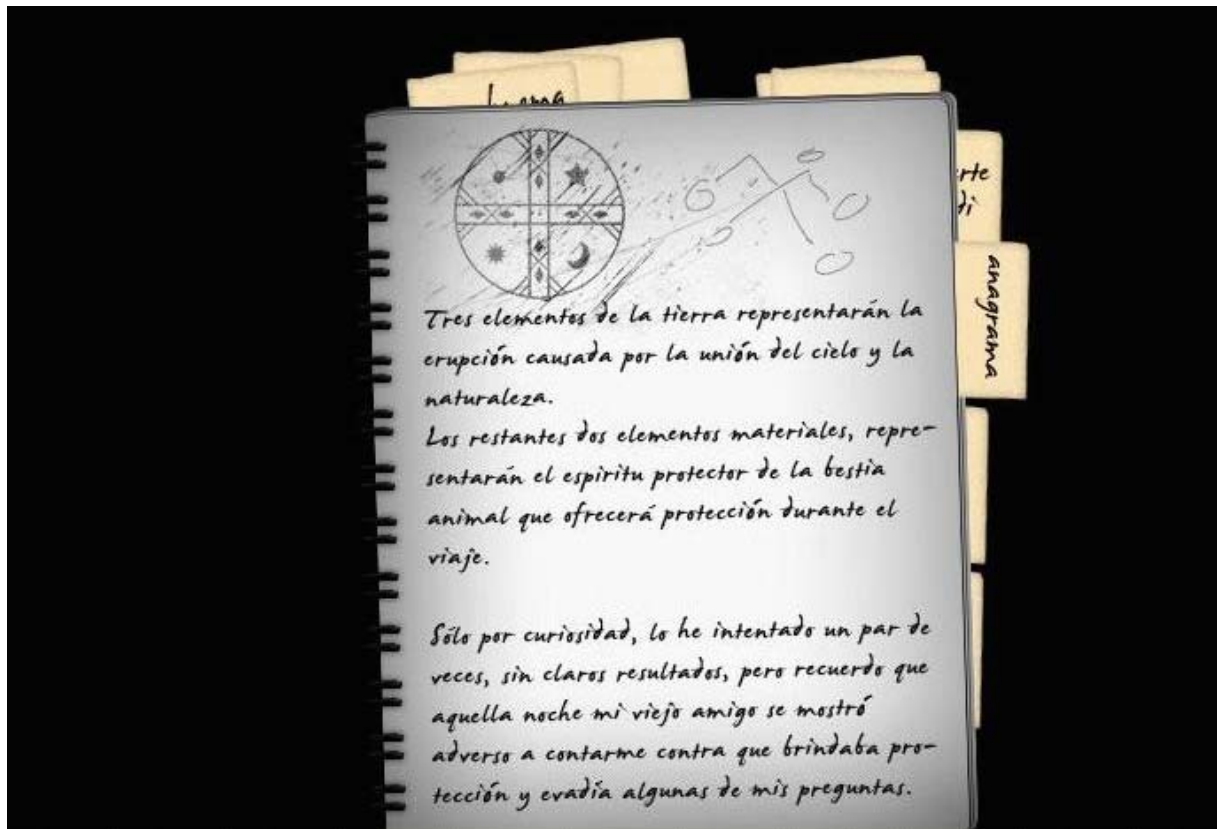 Tres elementos de la tierra representarán la
erupción causada por la unión del cielo y la
naturaleza.
Los restantes dos elementos materiales, repre-
sentarán el espiritu protector de la bestia
animal que ofrecerá protección durante el
viaje.
Sólo por curiosidad, lo he intentado un par de
veces, sin claros resultados, pero recuerdo que
aquella noche mi viejo amigo se mostró
adverso a contarme contra que brindaba pro-
tección y evadía algunas de mis preguntas.
anagrama